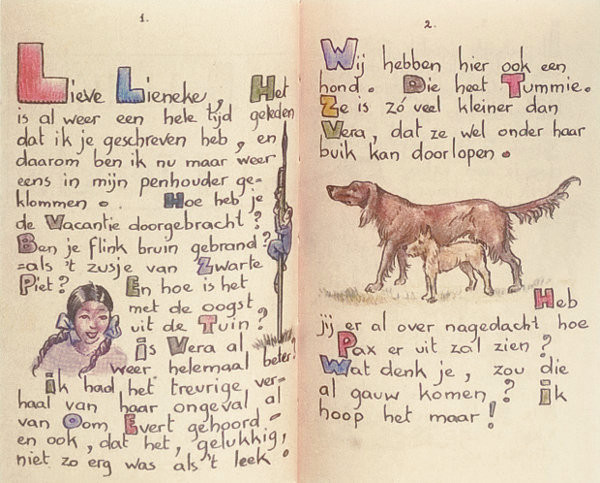 1.
Lieve Lieneke, Het
is al weer een hele tijd geleden
dat ik je geschreven heb, en
daarom ben ik nu maar weer
eens in mijn penhouder ge-
klommen. Hoe heb je
de Vacantie doorgebracht?
Ben je flink bruin gebrand?
=als 't zusje van Zwarte
Piet? En hoe is het
met de oogst
uit de Tuin?
is Vera al
weer helemaal beter?
ik had het treurige ver-
haal van haar ongeval al
van Oom Evert gehoord =
en ook, dat het, gelukkig,
niet zo erg was als 't leek!
2.
Wij hebben hier ook een
hond. Die heet Tummie.
Ze is zó veel kleiner dan
Vera, dat ze wel onder haar
buik kan doorlopen.
Heb
jij er al over nagedacht hoe
Pax er uit zal zien?
Wat denk je, zou die
al gauw komen? ik
hoop het maar!